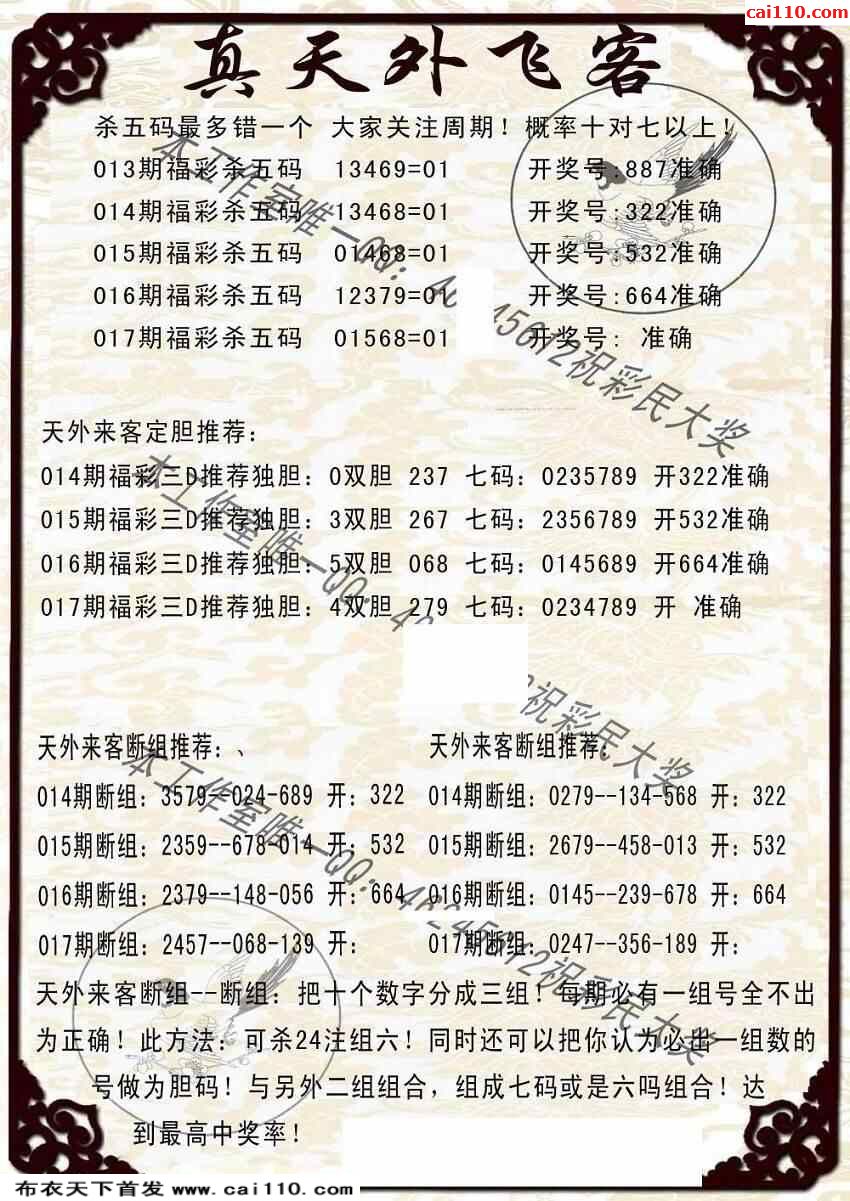 cai110.com
真天外飞客
杀五码最多错一个 大家关注周期！概率十对七以上！
013期福彩杀五码 13469=01 开奖号:887准确
014期福彩杀五码 13468=01 开奖号:322准确
015期福彩杀五码 01468=01 开奖号:532准确
016期福彩杀五码 12379=01 开奖号:664准确
017期福彩杀五码 01568=01 开奖号: 准确
天外来客定胆推荐：
014期福彩三D推荐独胆：0双胆 237 七码：0235789 开322准确
015期福彩三D推荐独胆：3双胆 267 七码：2356789 开532准确
016期福彩三D推荐独胆：5双胆 068 七码：0145689 开664准确
017期福彩三D推荐独胆：4双胆 279 七码：0234789 开 准确
天外来客断组推荐：、 天外来客断组推荐：
014期断组：3579--024-689 开：322 014期断组：0279--134-568 开：322
015期断组：2359--678-014 开：532 015期断组：2679--458-013 开：532
016期断组：2379--148-056 开：664 016期断组：0145--239-678 开：664
017期断组：2457--068-139 开： 017期断组：0247--356-189 开：
天外来客断组--断组：把十个数字分成三组！每期必有一组号全不出
为正确！此方法：可杀24注组六！同时还可以把你认为必出一组数的
号做为胆码！与另外二组组合，组成七码或是六吗组合！达
到最高中奖率！
本工作室唯一QQ：
祝彩民大奖
本工作室唯一QQ：
祝彩民大奖
本工作室唯一QQ：
祝彩民大奖
布衣天下首发 www.cai110.com